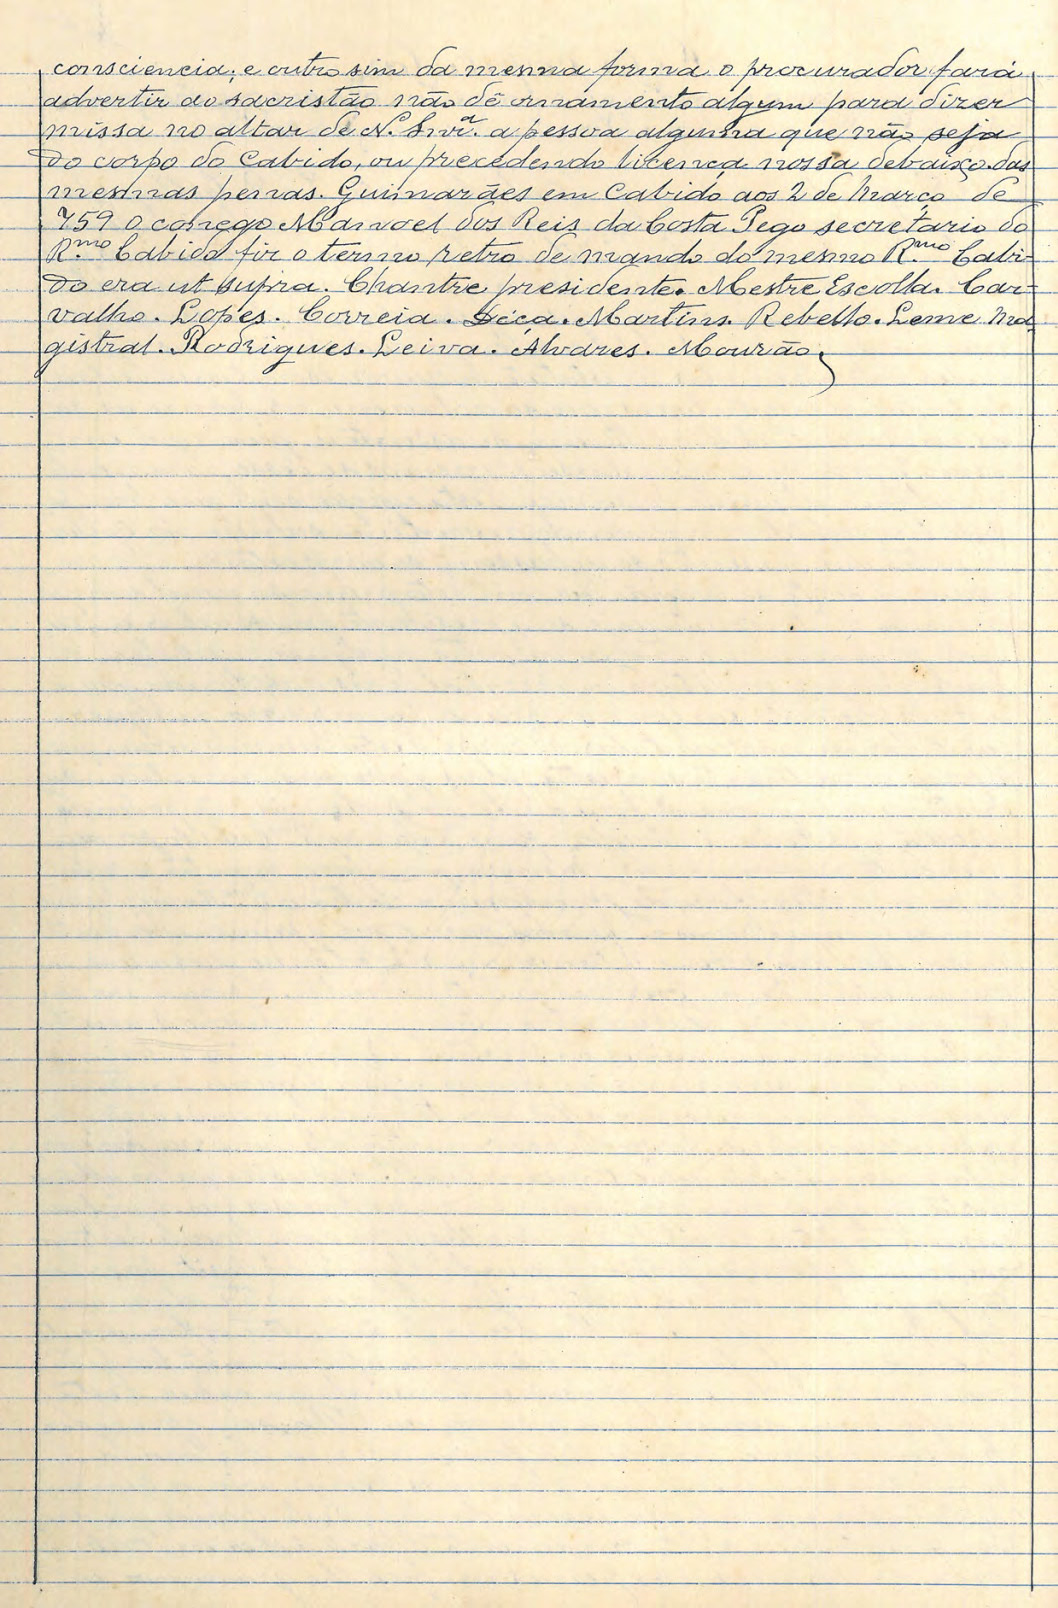 consciencia; e outro sim da mesma forma o procurador fará
advertir ao sacristão não dê ornamento algum para dizer
missa no altar de N. Snrª. a pessoa alguma que não seja
do corpo do Cabido, ou precedendo licença nossa debaixo das
mesmas penas. Guimarães em Cabido aos 2 de Março de
759 o conego Manoel dos Reis da Costa Pego secretario do
R.mo Cabido fiz o termo retro de mando do mesmo R.mo Cabi-
do era ut supra. Chantre presidente. Mestre Escolla. Car-
valho. Lopes. Correia. Déça. Martins. Rebello. Leme Ma
gistral. Rodrigues. Leiva. Alvares. Mourão.